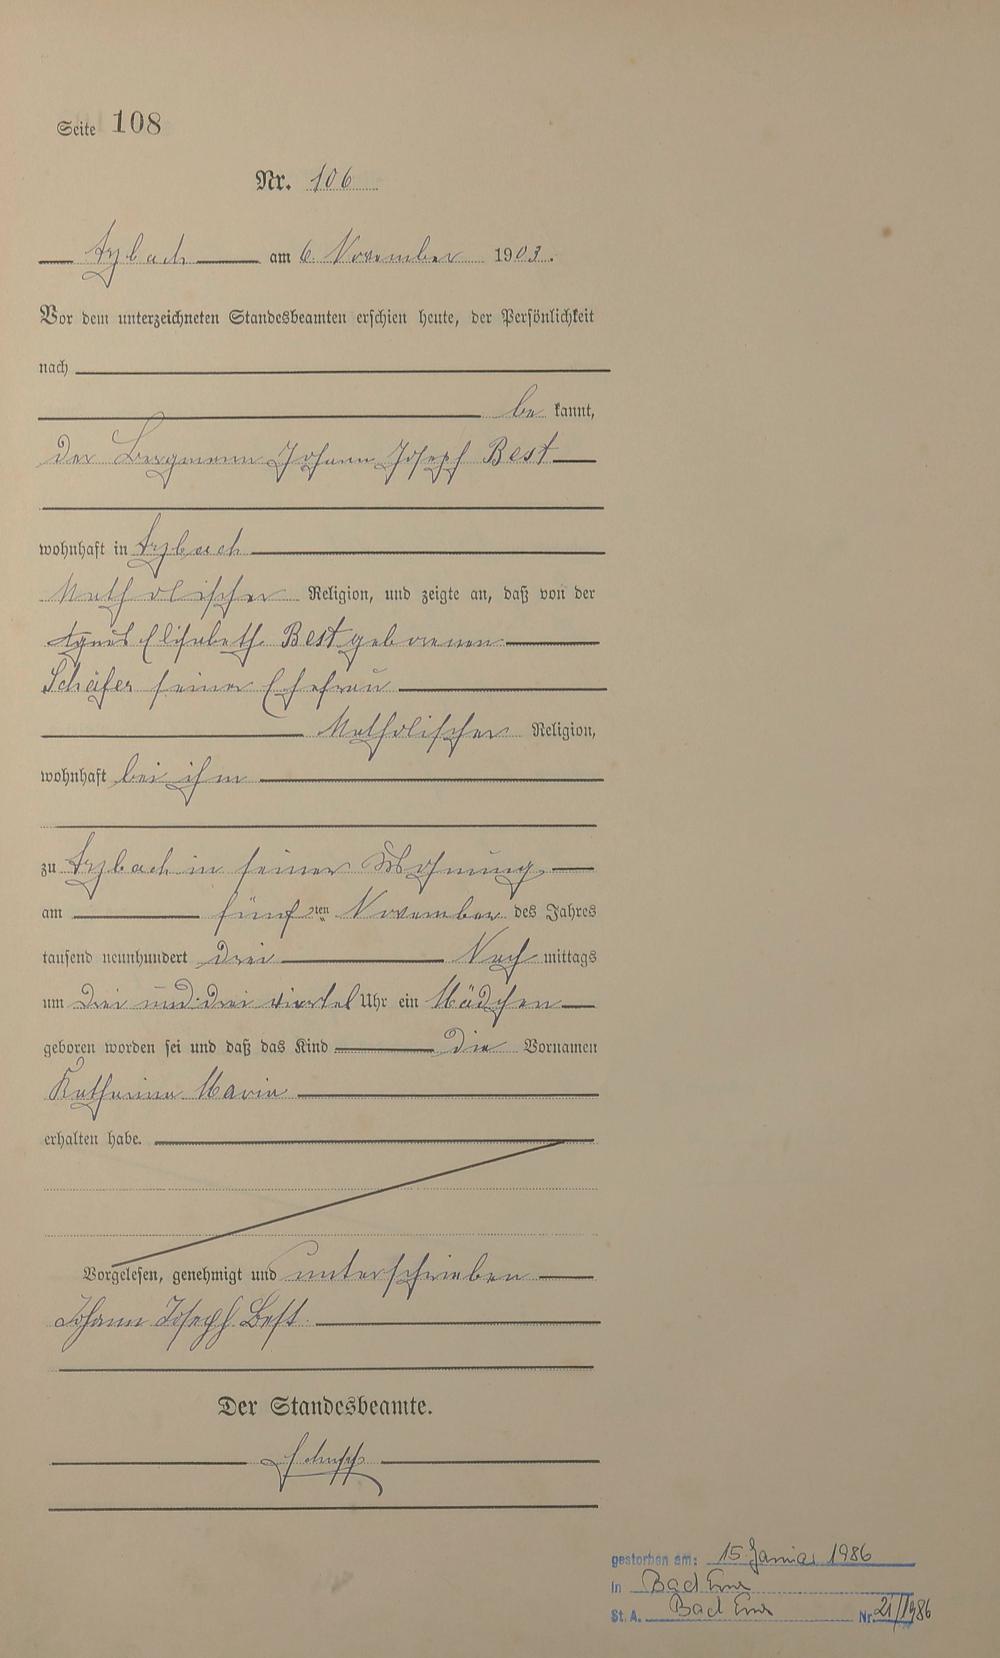 Seite 108
Nr. 106
Arzbach am 6. November 1903.
Vor dem unterzeichneten Standesbeamten erschien heute, der Persönlichkeit
nach
be kannt,
der Bergmann Johann Joseph Best
wohnhaft in Arzbach
Katholischer Religion, und zeigte an, daß von der
Agnes Elisabeth Best geborenen
Schäfer seiner Ehefrau
Katholischer Religion,
wohnhaft bei ihm
zu Arzbach in seiner Wohnung
am fünf ten November des Jahres
tausend neunhundert drei Nach mittags
um drei und drei viertel Uhr ein Mädchen
geboren worden sei und daß das Kind die Vornamen
Katharina Maria
erhalten habe.
Vorgelesen, genehmigt und unterschrieben
Johann Joseph Best
Der Standesbeamte.
gestorben am: 15. Januar 1986
in Bad Ems
St. A. Bad Ems Nr. 21/1986